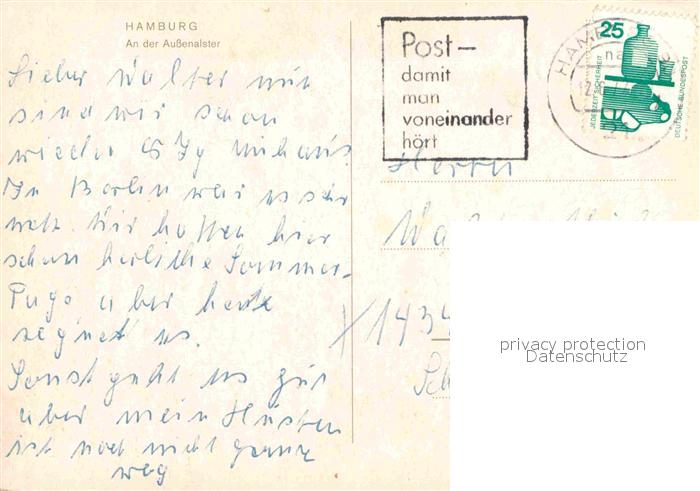 HAMBURG
An der Außenalster
Lieber Walter nun
sind wir schon
wieder 8 Tg zuhaus
In Berlin war es sehr
nett. Wir hatten hier
schon herrliche Sommer-
Tage aber heute
regnet es.
Sonst geht es gut
aber mein Husten
ist noch nicht ganz
weg
Post—
damit
man
voneinander
hört
25
JEDERZEIT SICHERHEIT
DEUTSCHE BUNDESPOST
Herrn
privacy protection
Datenschutz